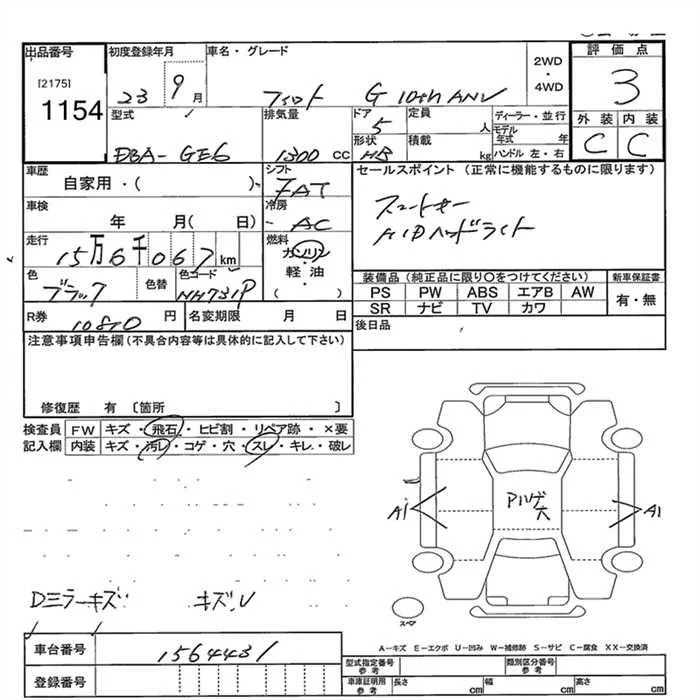 出品番号
[2175]
1154
初度登録年月
23 9 月
車名・グレード
フィット G 10th ANV
2WD
・
4WD
評価点
3
外装 内装
C C
型式
DBA-GE6
排気量
1300 CC
ドア
5
定員
人
形状
HB
積載
kg
ディーラー・並行
モデル年式 年
ハンドル 左・右
車歴
自家用・( )
シフト
FAT
車検
年 月( 日)
冷房
AC
走行
15万6千067 km
燃料
ガソリン
軽油
( )
色
ブラック
色替
色コード
NH731P
R券
10810 円
名変期限 月 日
セールスポイント (正常に機能するものに限ります)
スマートキー
HIDヘッドライト
装備品 (純正品に限り〇をつけてください)
PS PW ABS エアB AW
SR ナビ TV カワ
新車保証書
有・無
後日品
注意事項申告欄(不具合内容等は具体的に記入して下さい)
修復歴 有 〔箇所 〕
検査員
記入欄
FW キズ・飛石・ヒビ割・リペア跡・×要
内装 キズ・汚レ・コゲ・穴・スレ・キレ・破レ
A1
Pハゲ
穴
A1
Dミラーキズ キズ,U
スペア
A-キズ E-エクボ U-凹み W-補修跡 S-サビ C-腐食 XX-交換済
車台番号
1564431
登録番号
型式指定番号
参考
類別区分番号
参考
車庫証明用
参考
長さ cm
幅 cm
高さ cm